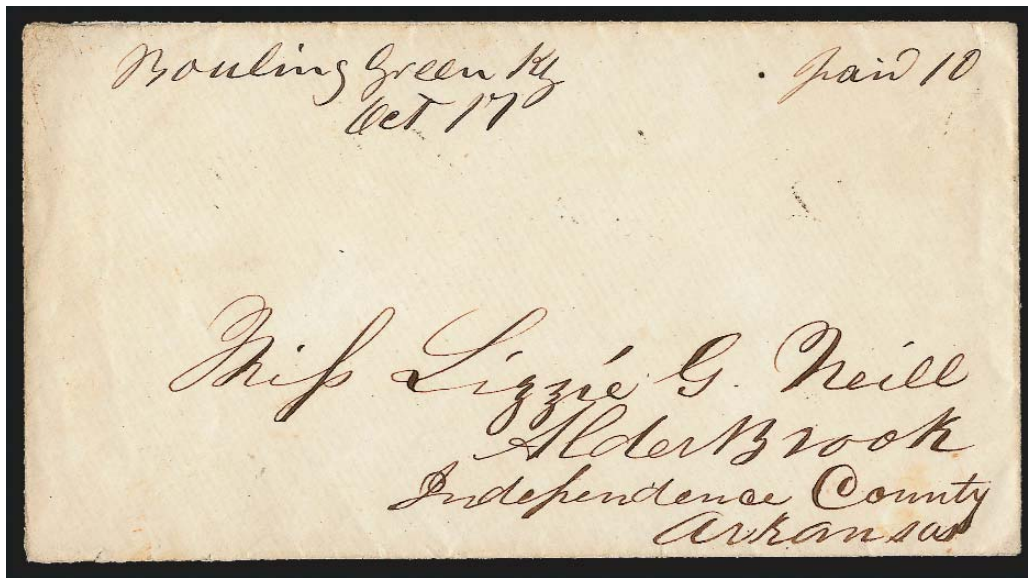 Bouling Green Ky
Oct 17
Paid 10
Miss Lizzie G. Neill
Alder Brook
Independence County
Arkansas